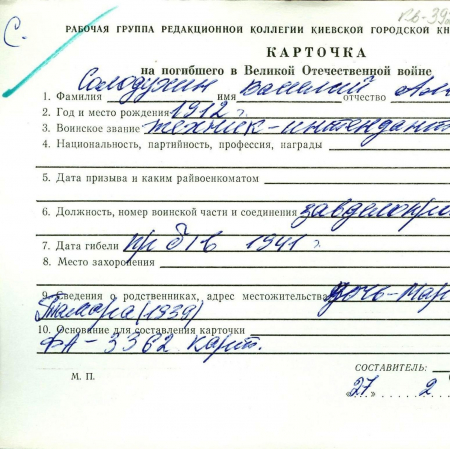 С.
РАБОЧАЯ ГРУППА РЕДАКЦИОННОЙ КОЛЛЕГИИ КИЕВСКОЙ ГОРОДСКОЙ КН
КАРТОЧКА
на погибшего в Великой Отечественной войне
1. Фамилия Солодухин имя Василий отчество
2. Год и место рождения 1912 г.
3. Воинское звание техник-интендант
4. Национальность, партийность, профессия, награды
5. Дата призыва и каким райвоенкоматом
6. Должность, номер воинской части и соединения завделопро
7. Дата гибели пр б/в 1941 г.
8. Место захоронения
9. Сведения о родственниках, адрес местожительства дочь-Мар
Тамара (1939)
10. Основание для составления карточки
ФА-3362 карт.
СОСТАВИТЕЛЬ:
М. П.
«27» 2